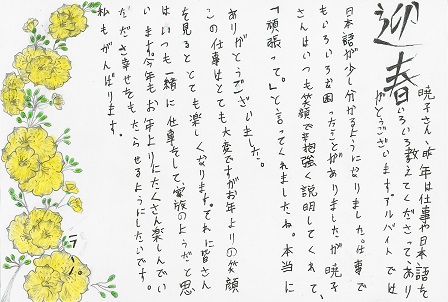 迎春
暁子さん、昨年は仕事や日本語を
いろいろ教えてくださってあり
がとうございます。アルバイトでは
日本語が少し分かるようになりました。仕事で
もいろいろな困ったことがありましたが、暁子
さんはいつも笑顔で辛抱強く説明してくれて、
「頑張って。」と言ってくれましたね。本当に
ありがとうございました。
この仕事はとても大変ですがお年よりの笑顔
を見るととても楽しくなります。それに皆さん
はいつも一緒に仕事をして家族のようだと思
います。今年もお年よりにたくさん楽しんでい
ただき幸せをもたらせるようにしたいです。
私もがんばります。